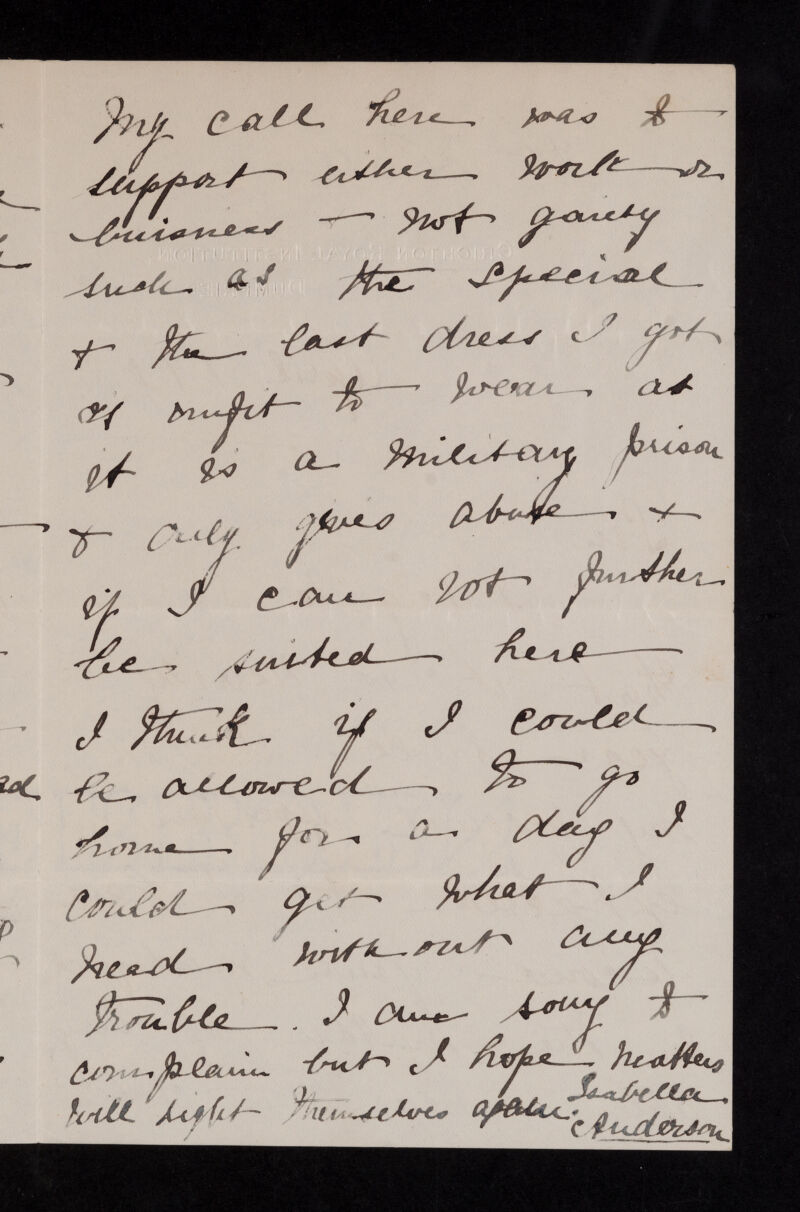 My call here was to
support either work or
buisness - not gaiety
such as the special
+ the last dress I got
is unfit to wear as
it is a military prison
+ only gives abuse +
if I can not further
be suited here
I think if I could
be allowed to go
home for a day I
could get what I
need without any
trouble. I am sorry to
complain but I hope matters
will right themselves again.
Isabella
Anderson